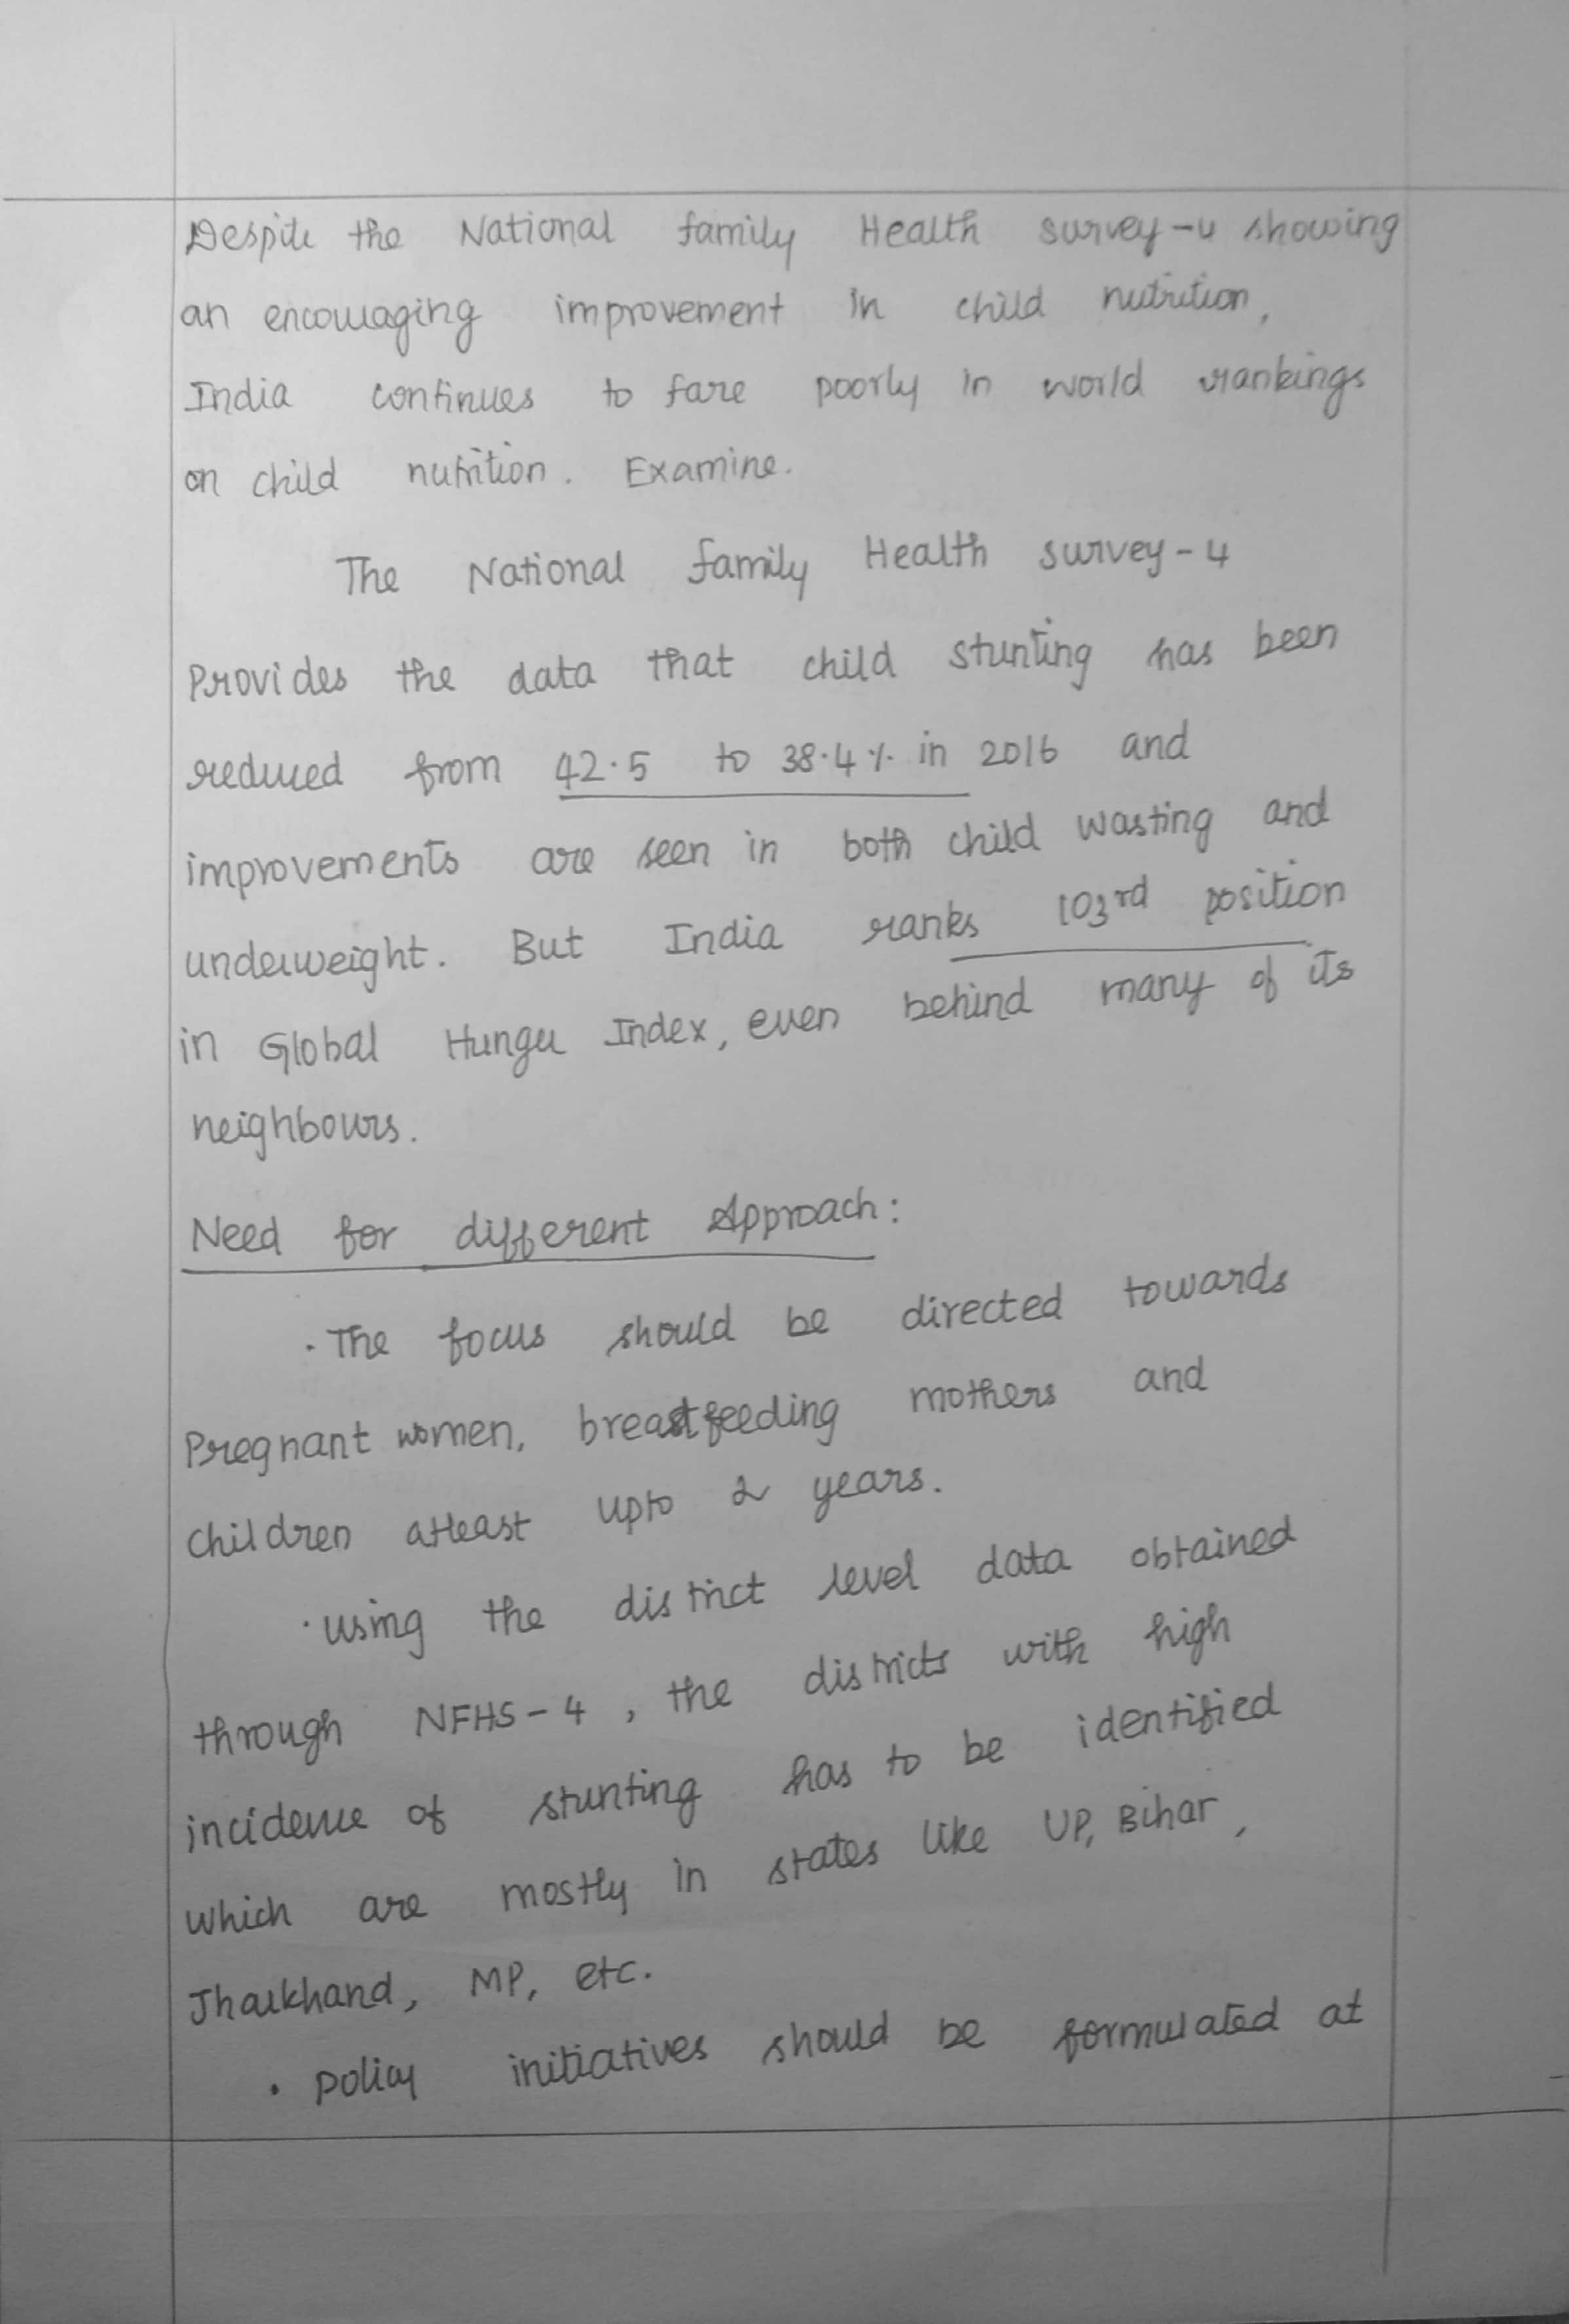 Despite the National family Health survey-4 showing
an encouraging improvement in child nutrition,
India continues to fare poorly in world rankings
on child nutrition. Examine.
The National family Health survey-4
Provides the data that child stunting has been
reduced from 42.5 to 38.4% in 2016 and
improvements are seen in both child wasting and
underweight. But India ranks 103rd position
in Global Hunger Index, even behind many of its
neighbours.
Need for different Approach:
· The focus should be directed towards
Pregnant women, breastfeeding mothers and
children atleast upto 2 years.
· using the district level data obtained
through NFHS-4, the districts with high
incidence of stunting has to be identified
which are mostly in states like UP, Bihar,
Jharkhand, MP, etc.
· policy initiatives should be formulated at